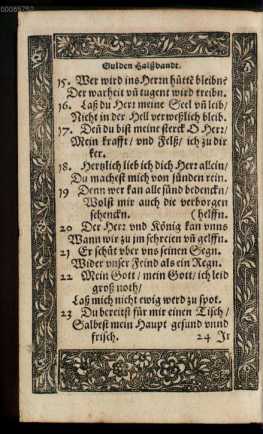 00065752
Gulden Halßbandt.
15. Wer wird ins Herrn hüttē bleibn?
Der warheit vn̄ tugent wird treibn.
16. Laß du Herr meine Seel vn̄ leib/
Nicht in der Hell verweßlich bleib.
17. Deñ du bist meine sterck O Herr/
Mein krafft/ vnd Felß/ ich zu dir
ker.
18. Hertzlich lieb ich dich Herr allein/
Du machest mich von sünden rein.
19 Denn wer kan alle sünd bedenckn/
Wolst mir auch die verborgen
schenckn. (helffn.
20 Der Herr vnd König kan vnns
Wann wir zu jm schreien vn̄ gelffn.
21 Er schüt vber vns seinen Segn.
Wider vnser Feind als ein Regn.
22 Mein Gott/ mein Gott/ ich leid
groß noth/
Laß mich nicht ewig werd zu spot.
23 Du bereitst für mir einen Tisch/
Salbest mein Haupt gesund vnnd
frisch. 24 Jr